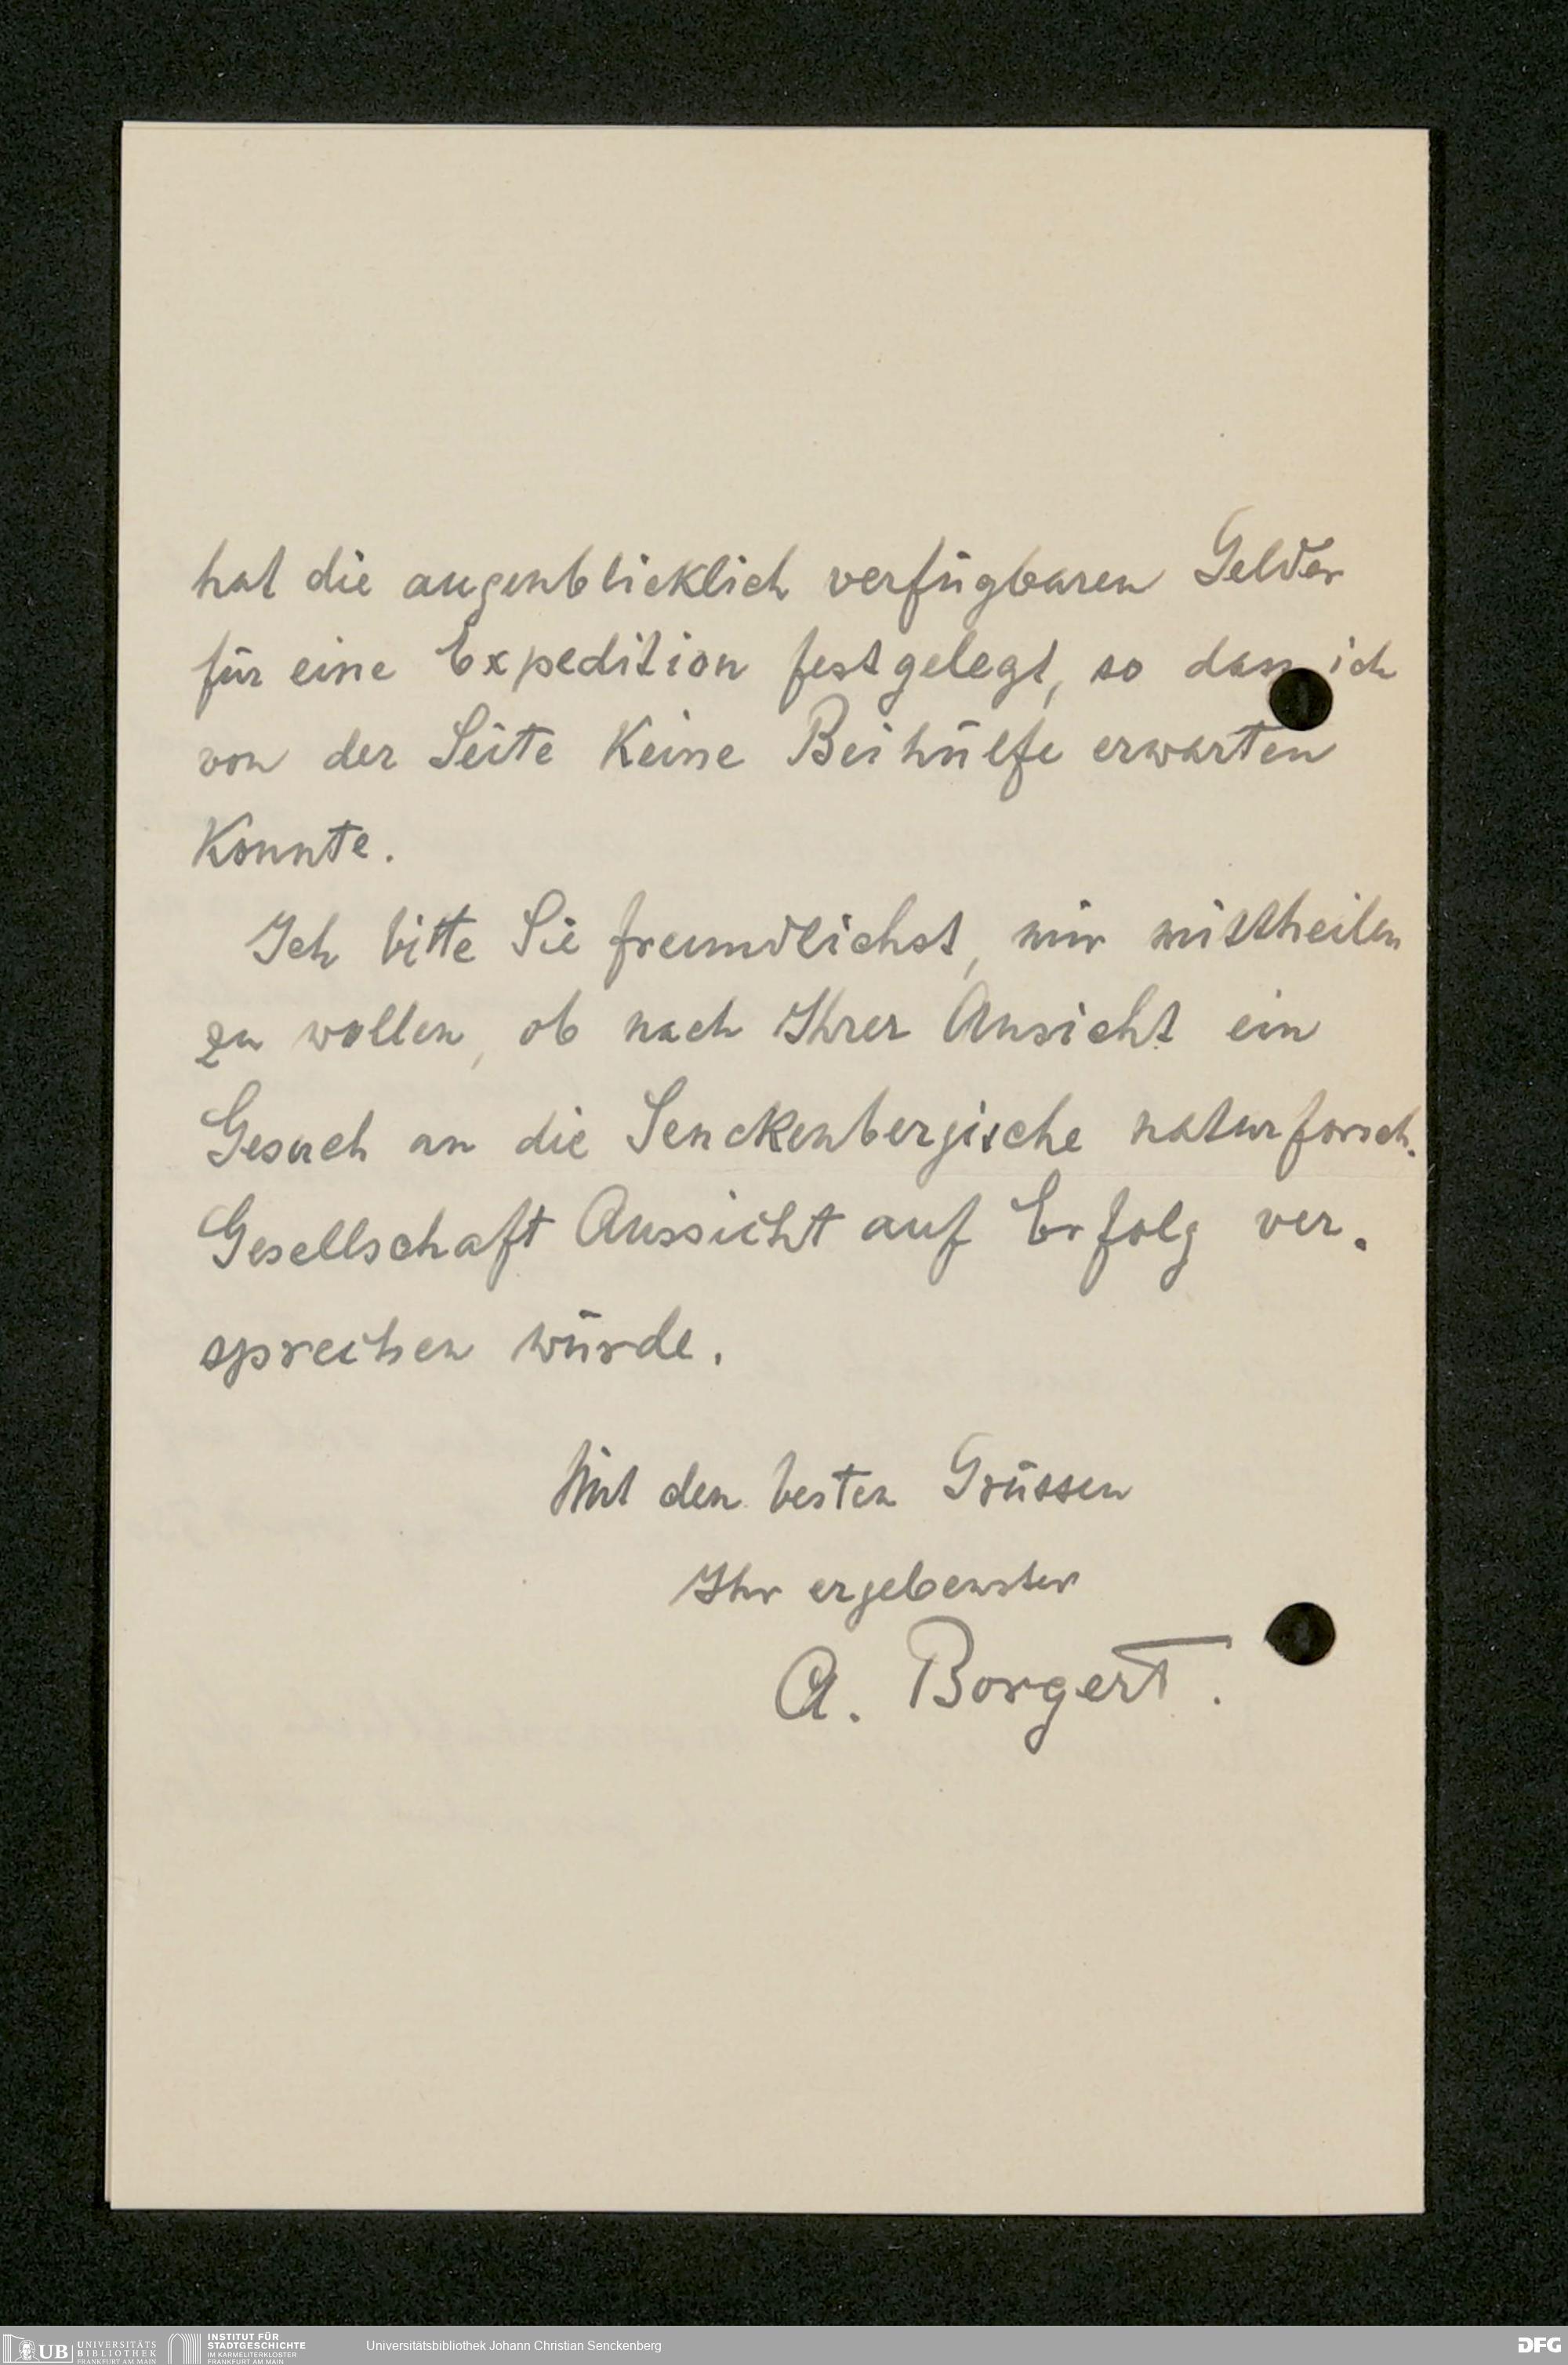 hat die augenblicklich verfügbaren Gelder
für eine Expedition festgelegt, so dass ich
von der Seite keine Beihülfe erwarten
konnte.
Ich bitte Sie freundlichst, mir mittheilen
zu wollen, ob nach Ihrer Ansicht ein
Gesuch an die Senckenbergische naturforsch.
Gesellschaft Aussicht auf Erfolg ver-
sprechen würde.
Mit den besten Grüssen
Ihr ergebenster
A. Borgert.
UB UNIVERSITÄTS
BIBLIOTHEK
FRANKFURT AM MAIN
INSTITUT FÜR
STADTGESCHICHTE
IM KARMELITERKLOSTER
FRANKFURT AM MAIN
Universitätsbibliothek Johann Christian Senckenberg
DFG